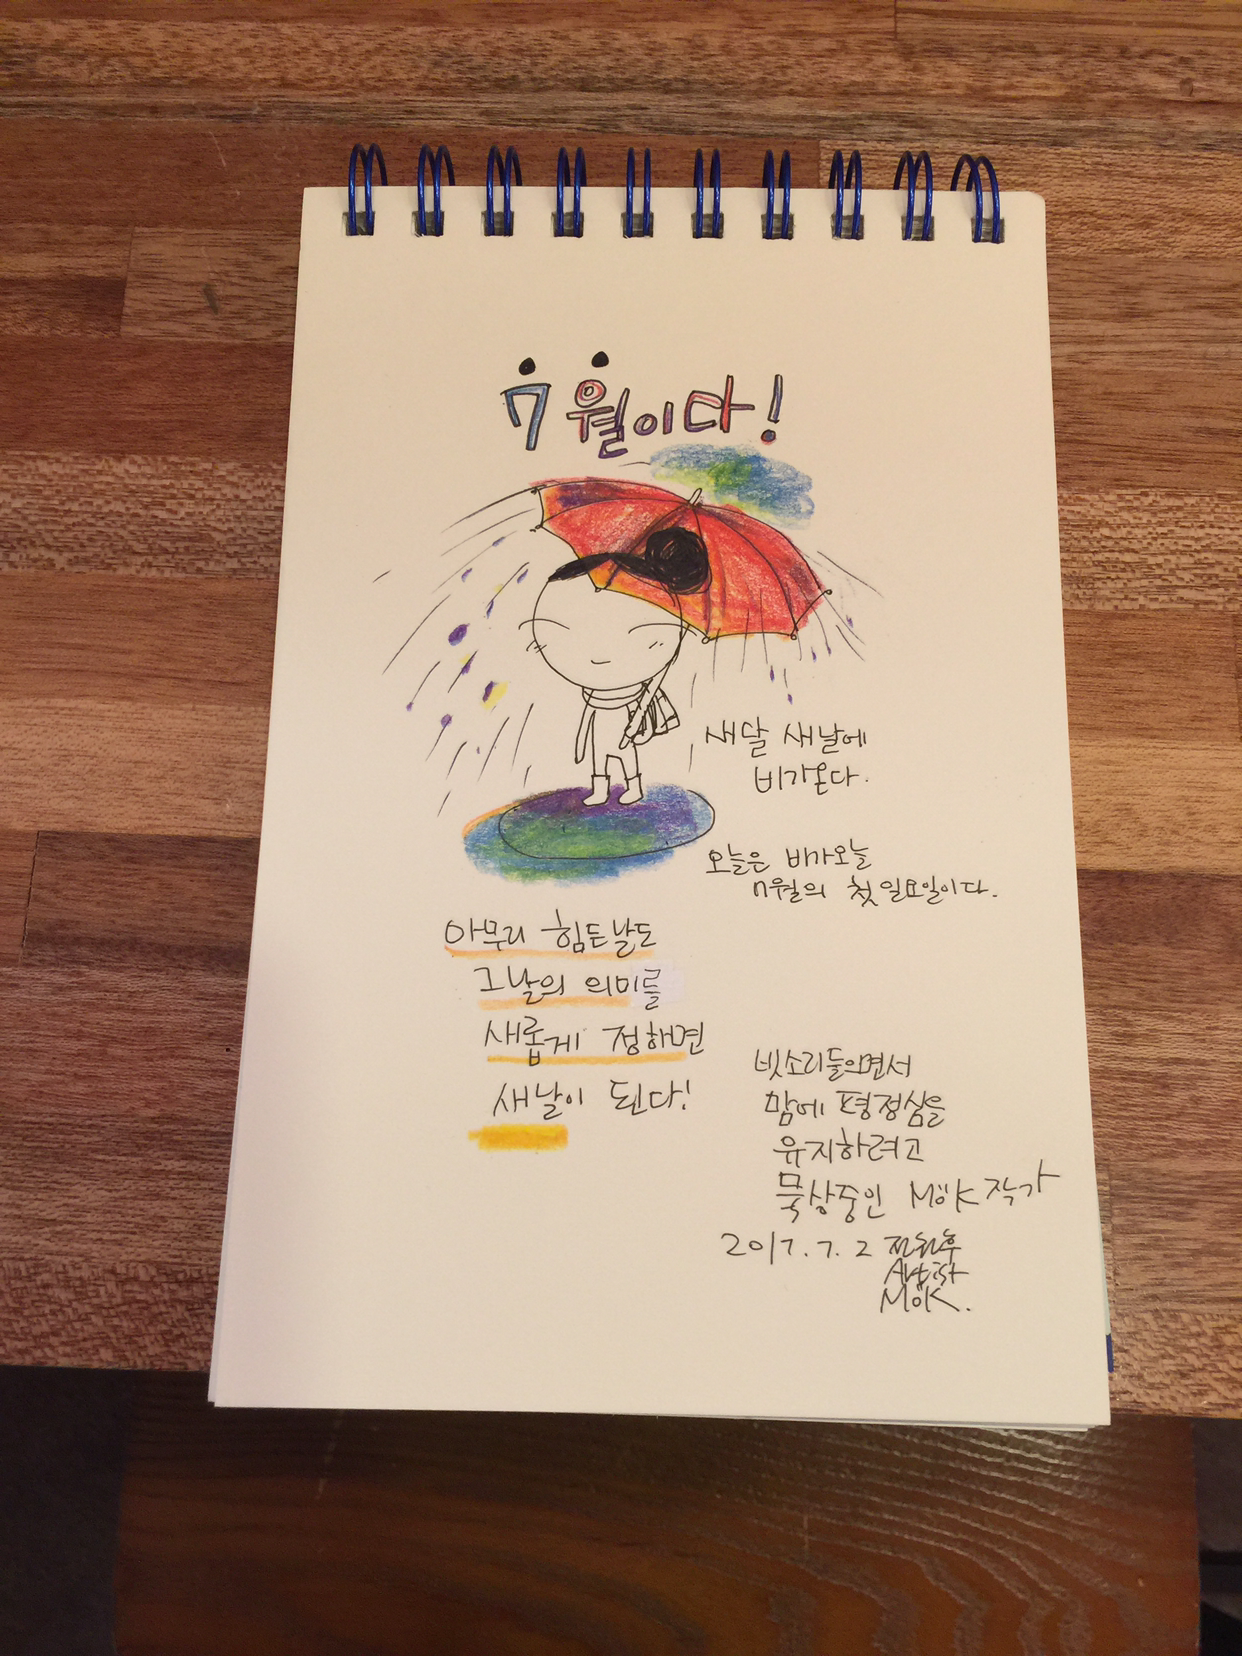 7월이다!
새달 새날에
비가온다.
오늘은 비가오늘
7월의 첫 일요일이다.
아무리 힘든날도
그날의 의미를
새롭게 정하면
새날이 된다!
빗소리들으면서
맘에 평정심을
유지하려고
묵상중인 MöK 작가
2017. 7. 2
Artist
MöK.